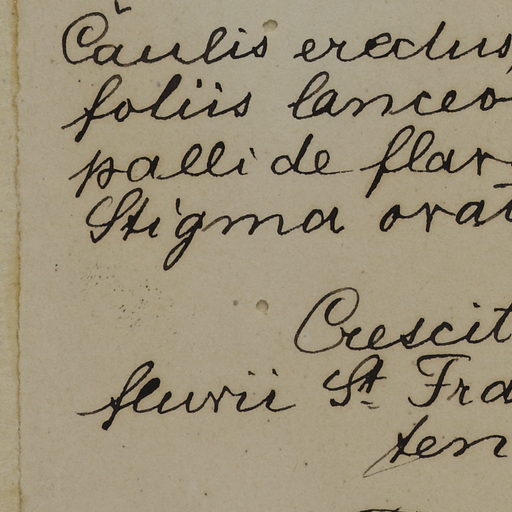 Câulis erectus,
foliis lanceo
pallide flav
Stigma ovat
Crescit
fluvii St. Fra
ten